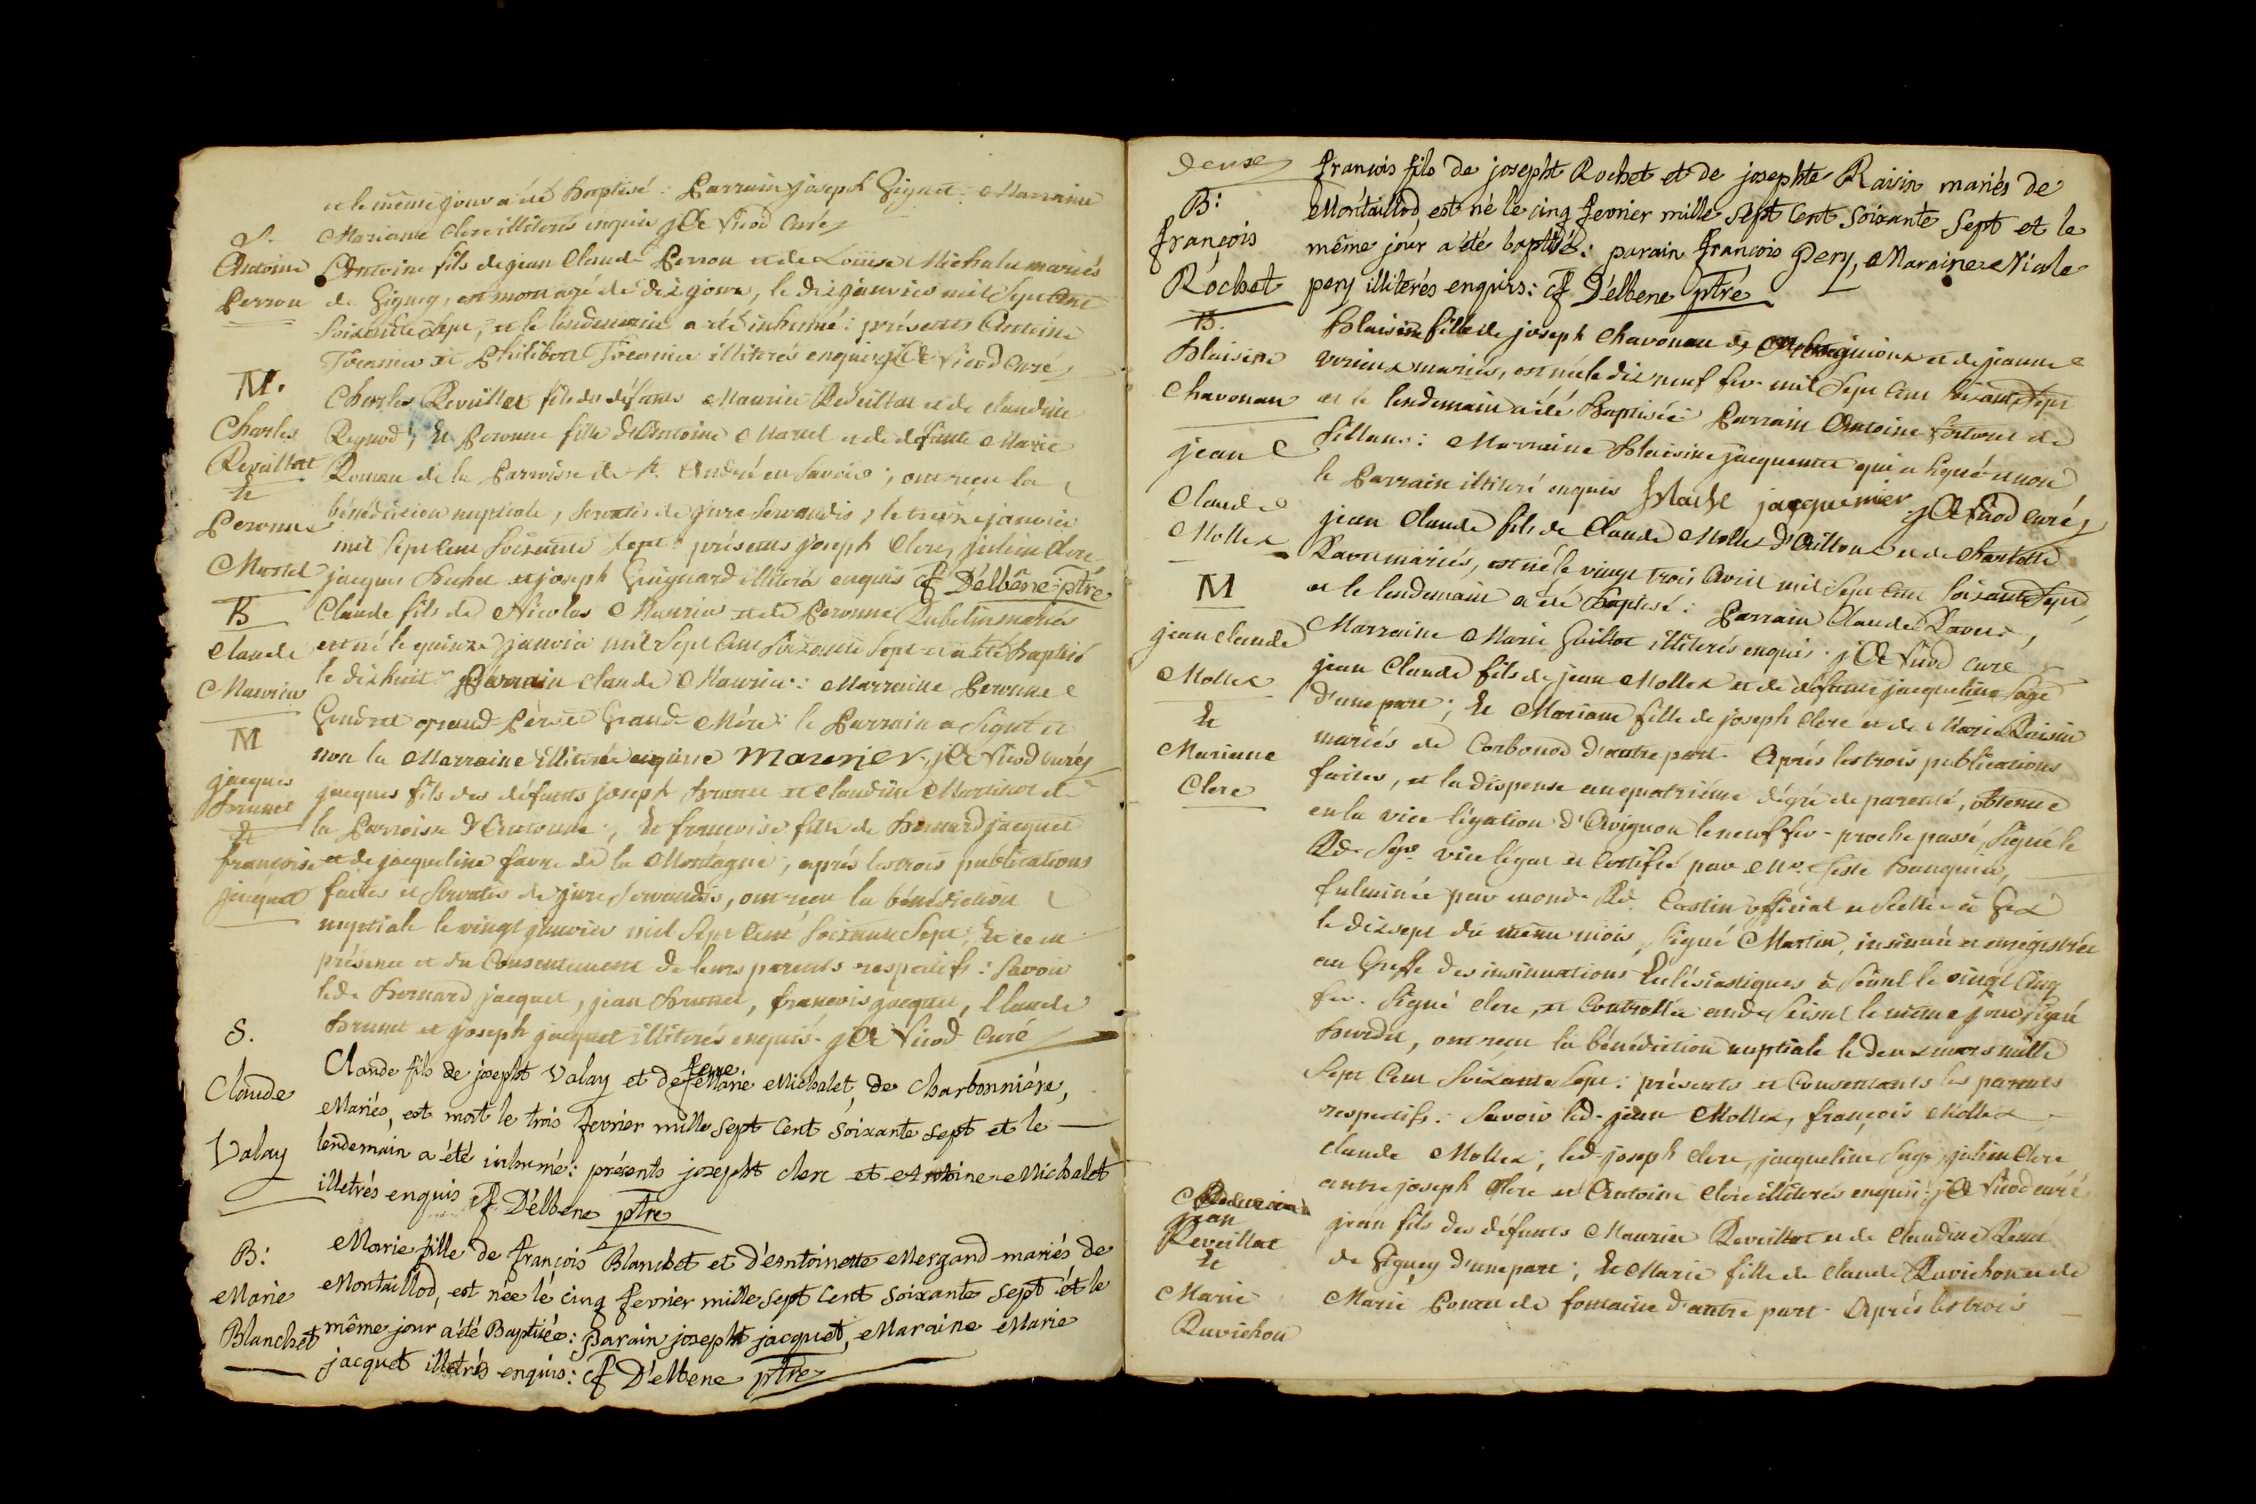 et le même jour a été baptisé : Parrain joseph Marraine
Mariane Clerc illiterés enquis j Ae Nicod Curé
S.
Antoine
Perron
Antoine fils de jean Claude Perron et de Louïse Michalet mariés
de est mort agé de dix jours, le dix janvier mil Sept Cent
Soixante Sept, et le lendemain a été inhumé : présents Antoine
et Philibert illiterés enquis j Ae Nicod Curé
M.
Charles
Reveillat
Et
Peronne
Martel
Charles Reveillat fils des défunts Maurice Reveillat et de Claudine
Et Peronne fille d'Antoine Martel et de défunte Marie
de la Parroisse de St. André en Savoie ; ont reçu la
bénédiction nuptiale, servatis de jure servandis, le treize janvier
mil Sept Cent Soixante Sept : présents joseph Clerc, julien Clerc
jacques et joseph illiterés enquis f D'elbene ptre
B
Claude
Maurier
Claude fils de Nicolas Maurier et de Peronne mariés
est né le quinze janvier mil Sept Cent Soixante Sept et a été baptisé
le dixhuit Parrain Claude Maurier : Marraine Peronne
grand Père et Grande Mère : le Parrain a signé et
non la Marraine illiterée enquise Maurier j Ae Nicod curé
M
jacques
Brunet
Et
françoise
jacquet
jacques fils des défunts joseph Brunet et Claudine de
la Parroisse Et françoise fille de Bernard jacquet
et de jacqueline favre de la Montagne, après les trois publications
faites et Servatis de jure Servandis, ont reçu la bénédiction
nuptiale le vingt janvier mil Sept Cent Soixante Sept ; Et ce en
présence et du Consentement de leurs parents respectifs : Savoir
led. Bernard jacquet, jean Brunet, françois jacquet, Claude
Brunet et joseph jacquet illiterés enquis. j Ae Nicod Curé
S.
Claude
Valay
Claude fils de josepht Valay et de feue Marie Michalet, de Charbonniére,
Mariés, est mort le trois fevrier mille sept Cent soixante sept et le
lendemain a été inhumé : présents josepht clerc et Antoine Michalet
illetrés enquis f D'elbene ptre
B:
Marie
Blanchet
Marie fille de françois Blanchet et d'Antoinette Mergand mariés de
Montaillod, est née le cinq fevrier mille sept Cent soixante sept et le
même jour a été Baptisée : Parain josepht jacquet, Maraine Marie
jacquet illetrés enquis : f D'elbene ptre
deux
B:
françois
Rochet
françois fils de josepht Rochet et de josephte Raisin mariés de
Montaillod, est né le cinq fevrier mille sept Cent soixante sept et le
même jour a été baptisé : parain françois Pery, Maraine Nicole
pery illiterés enquis : f D'elbene ptre
B.
Blaisine
Chavonan
Blaisine fille de joseph Chavonan de et de jeanne
mariés, est née le dix neuf fev. mil Sept Cent Soixante Sept
et le lendemain a été Baptisée : Parrain Antoine de
Marraine Blaisine jacquemier qui a signé et non
le Parrain illiteré enquis jacquemier. j Ae Nicod curé
jean
Claude
Mollex
jean Claude fils de Claude Mollex et de Charlotte
Ravet mariés, est né le vingt trois Avril mil Sept Cent Soixante Sept
et le lendemain a été Baptisé : Parrain Claude Ravet,
Marraine Marie Guillot illiterés enquis. j Ae Nicod curé
M
jean Claude
Mollex
Et
Mariane
Clerc
jean Claude fils de jean Mollex et de défunte jacqueline Sage
d'une part ; Et Mariane fille de joseph Clerc et de Marie Raisin
mariés de Corbonod d'autre part. Après les trois publications
faites, et la dispense au quatriéme dégré de parenté, obtenue
en la vice légation d'Avignon le neuf fev. proche passé, Signé le
Rd. Sgr. vice légat et certifié par Mr.
fulminée par Rd. official
le dixsept du même mois, Signé Martin, insinuée et enregistrée
au Greffe des insinuations Ecclésiastiques à le vingt Cinq
fev. Signé Clerc, et Controllée aud. le même jour, Signé
ont reçu la bénédiction nuptiale le deux mars mille
Sept Cent Soixante Sept : présents et Consentants les parents
respectifs : Savoir led. jean Mollex, françois Mollex
Claude Mollex, led. joseph Clerc, jacqueline Sage, julien Clerc
autre joseph Clerc et Antoine Clerc illiterés enquis. j Ae Nicod curé
jean
Reveillat
Et
Marie
Ravichon
jean fils des défunts Maurice Reveillat et de Claudine
de d'une part ; Et Marie fille de Claude Ravichon et de
Marie de fontaine d'autre part. Après les trois